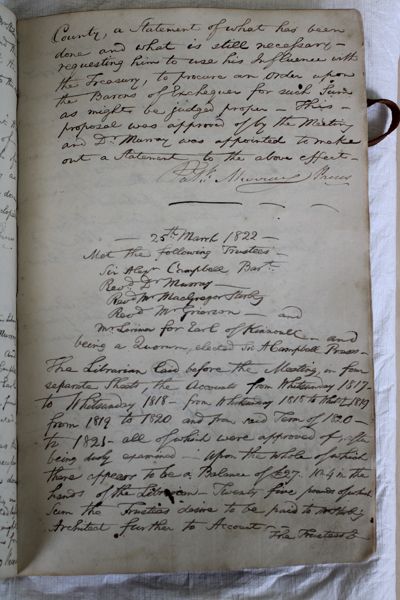 County, a Statement of what has been
done and what is still necessary —
requesting him to use his Influence with
the Treasury, to procure an order upon
the Barons of Exchequer for such Sum
as might be judged proper — This —
proposal was approved of by the Meeting
and Dr. Murray was appointed to make
out a Statement to the above effect —
Patk. Murray Preses
— 25th March 1822 —
Met the following Trustees —
Sir Alexr. Campbell Bart.
Revd. Dr Murray
Revd. Mr MacGregor Stirling
Revd. Mr Grierson — and
Mr Lorimer for Earl of Kinnoull — and
being a Quorum, elected Sir A Campbell Preses —
The Librarian laid before the Meeting, in four
separate Sheets, the Accounts from Whitsunday 1817 —
to Whitsunday 1818 — from Whitsunday 1818 to 1819
from 1819 to 1820 and from said Term of 1820 —
to 1821 — all of which were approved of, after
being duly examined — Upon the Whole of which
there appears to be a Balance of £27. 18. 4 in the
hands of the Librarian — Twenty five pounds of which
Sum the Trustees desire to be paid to
Architect further to Account —
The Trustees